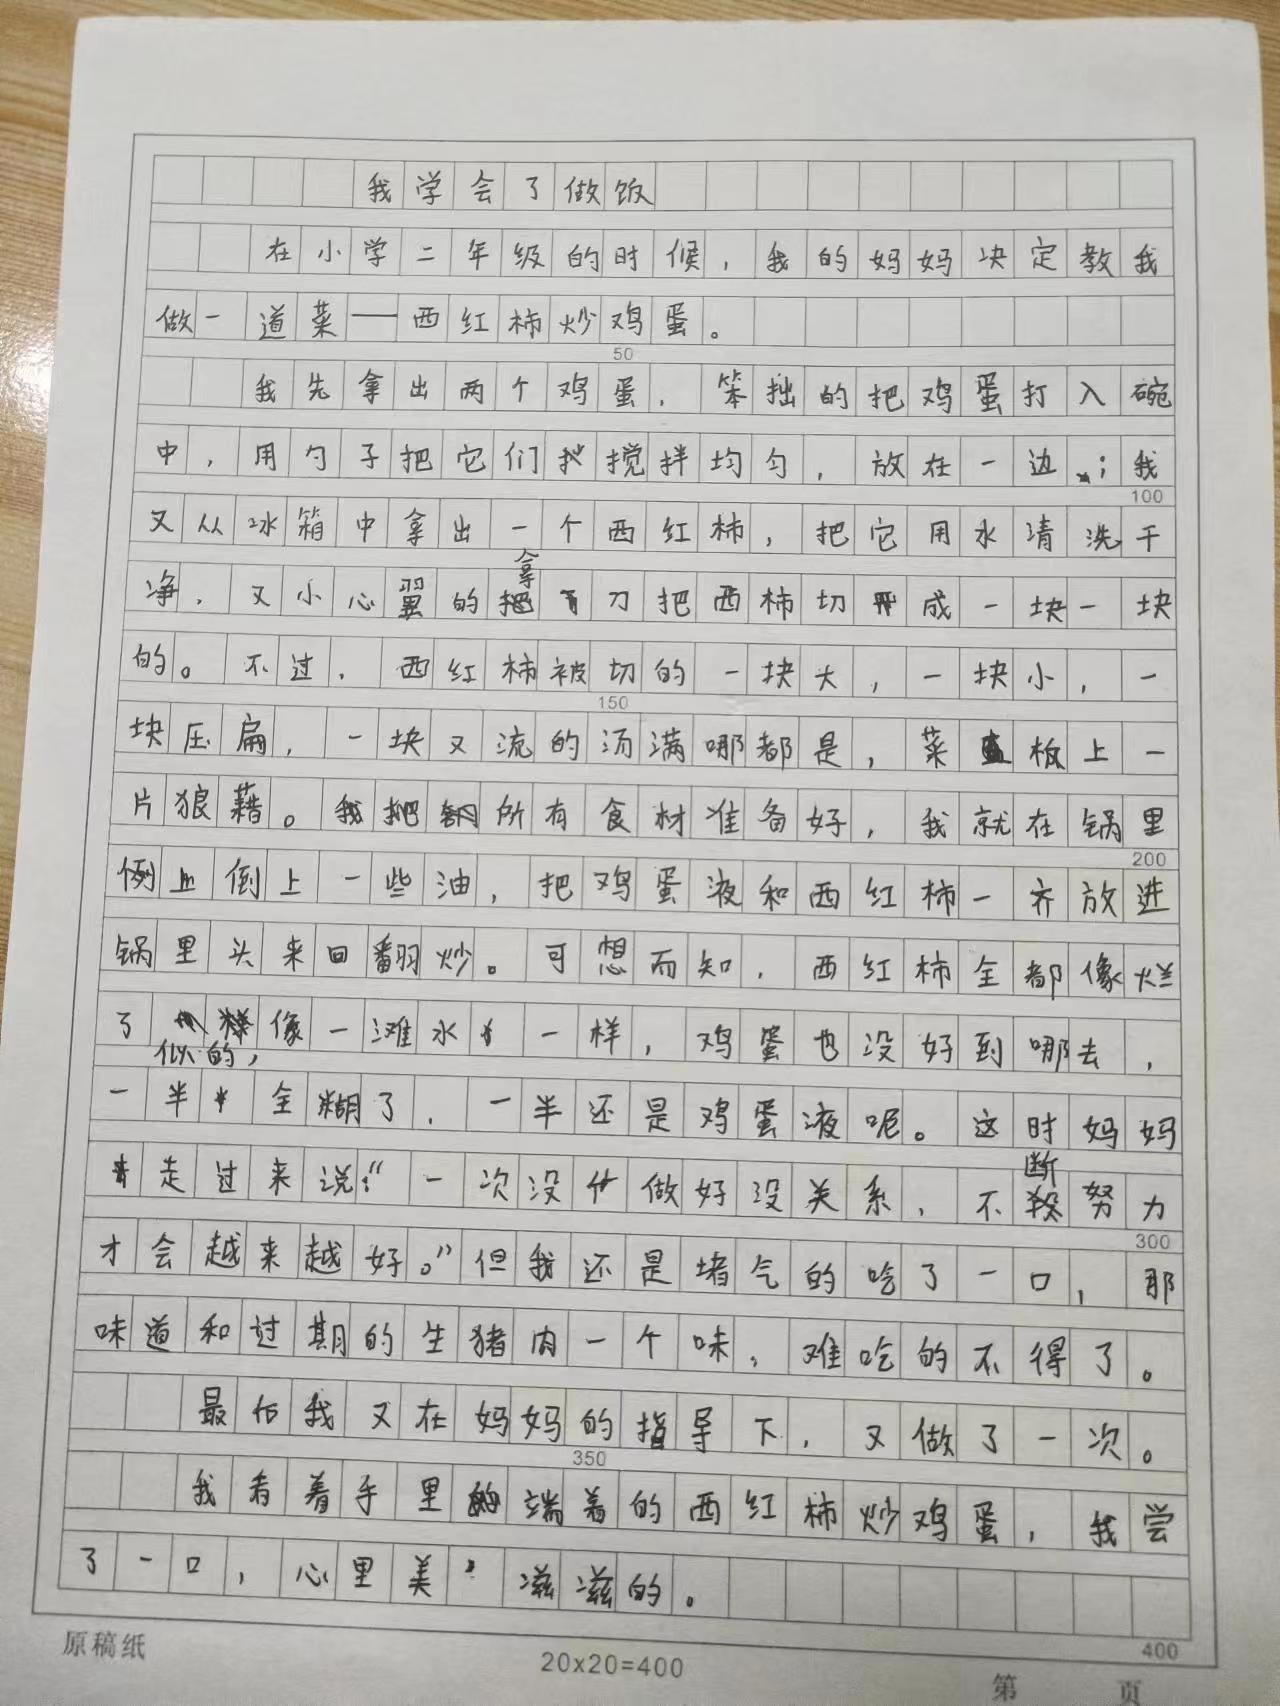 我学会了做饭
在小学二年级的时候，我的妈妈决定教我
做一道菜——西红柿炒鸡蛋。
50
我先拿出两个鸡蛋，笨拙的把鸡蛋打入碗
中，用勺子把它们搅拌均匀，放在一边；我
100
又从冰箱中拿出一个西红柿，把它用水清洗干
净，又小心翼的拿刀把西柿切成一块一块
的。不过，西红柿被切的一块大，一块小，一
150
块压扁，一块又流的汤满哪都是，菜板上一
片狼藉。我把所有食材准备好，我就在锅里
200
倒上一些油，把鸡蛋液和西红柿一齐放进
锅里头来回翻炒。可想而知，西红柿全都像烂
了似的，像一滩水一样，鸡蛋也没好到哪去，
一半全糊了，一半还是鸡蛋液呢。这时妈妈
走过来说：“一次没做好没关系，不断努力
300
才会越来越好。”但我还是堵气的吃了一口，那
味道和过期的生猪肉一个味，难吃的不得了。
最后我又在妈妈的指导下，又做了一次。
350
我看着手里端着的西红柿炒鸡蛋，我尝
了一口，心里美滋滋的。
400
原稿纸
20x20=400
第 页